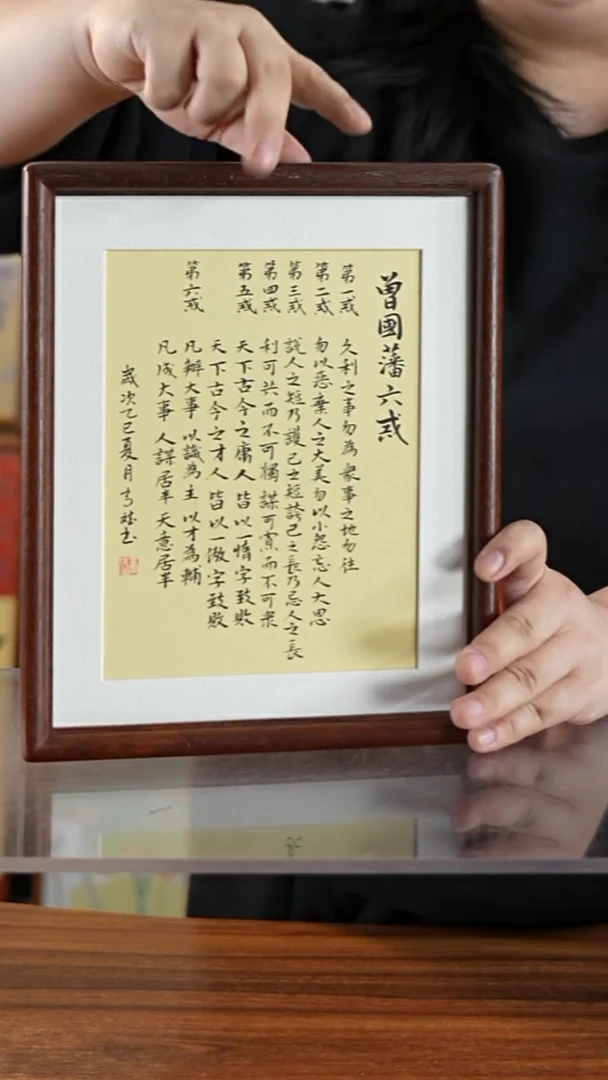 曾國藩六戒
第一戒 久利之事勿為 衆爭之地勿往
第二戒 勿以惡棄人之大美 勿以小怨忘人大恩
第三戒 說人之短乃護己之短 誇己之長乃忌人之長
第四戒 利可共而不可獨 謀可寡而不可衆
第五戒 天下古今之庸人 皆以一惰字致敗
天下古今之才人 皆以一傲字致敗
第六戒 凡辦大事 以識為主 以才為輔
凡成大事 人謀居半 天意居半
歲次乙巳夏月